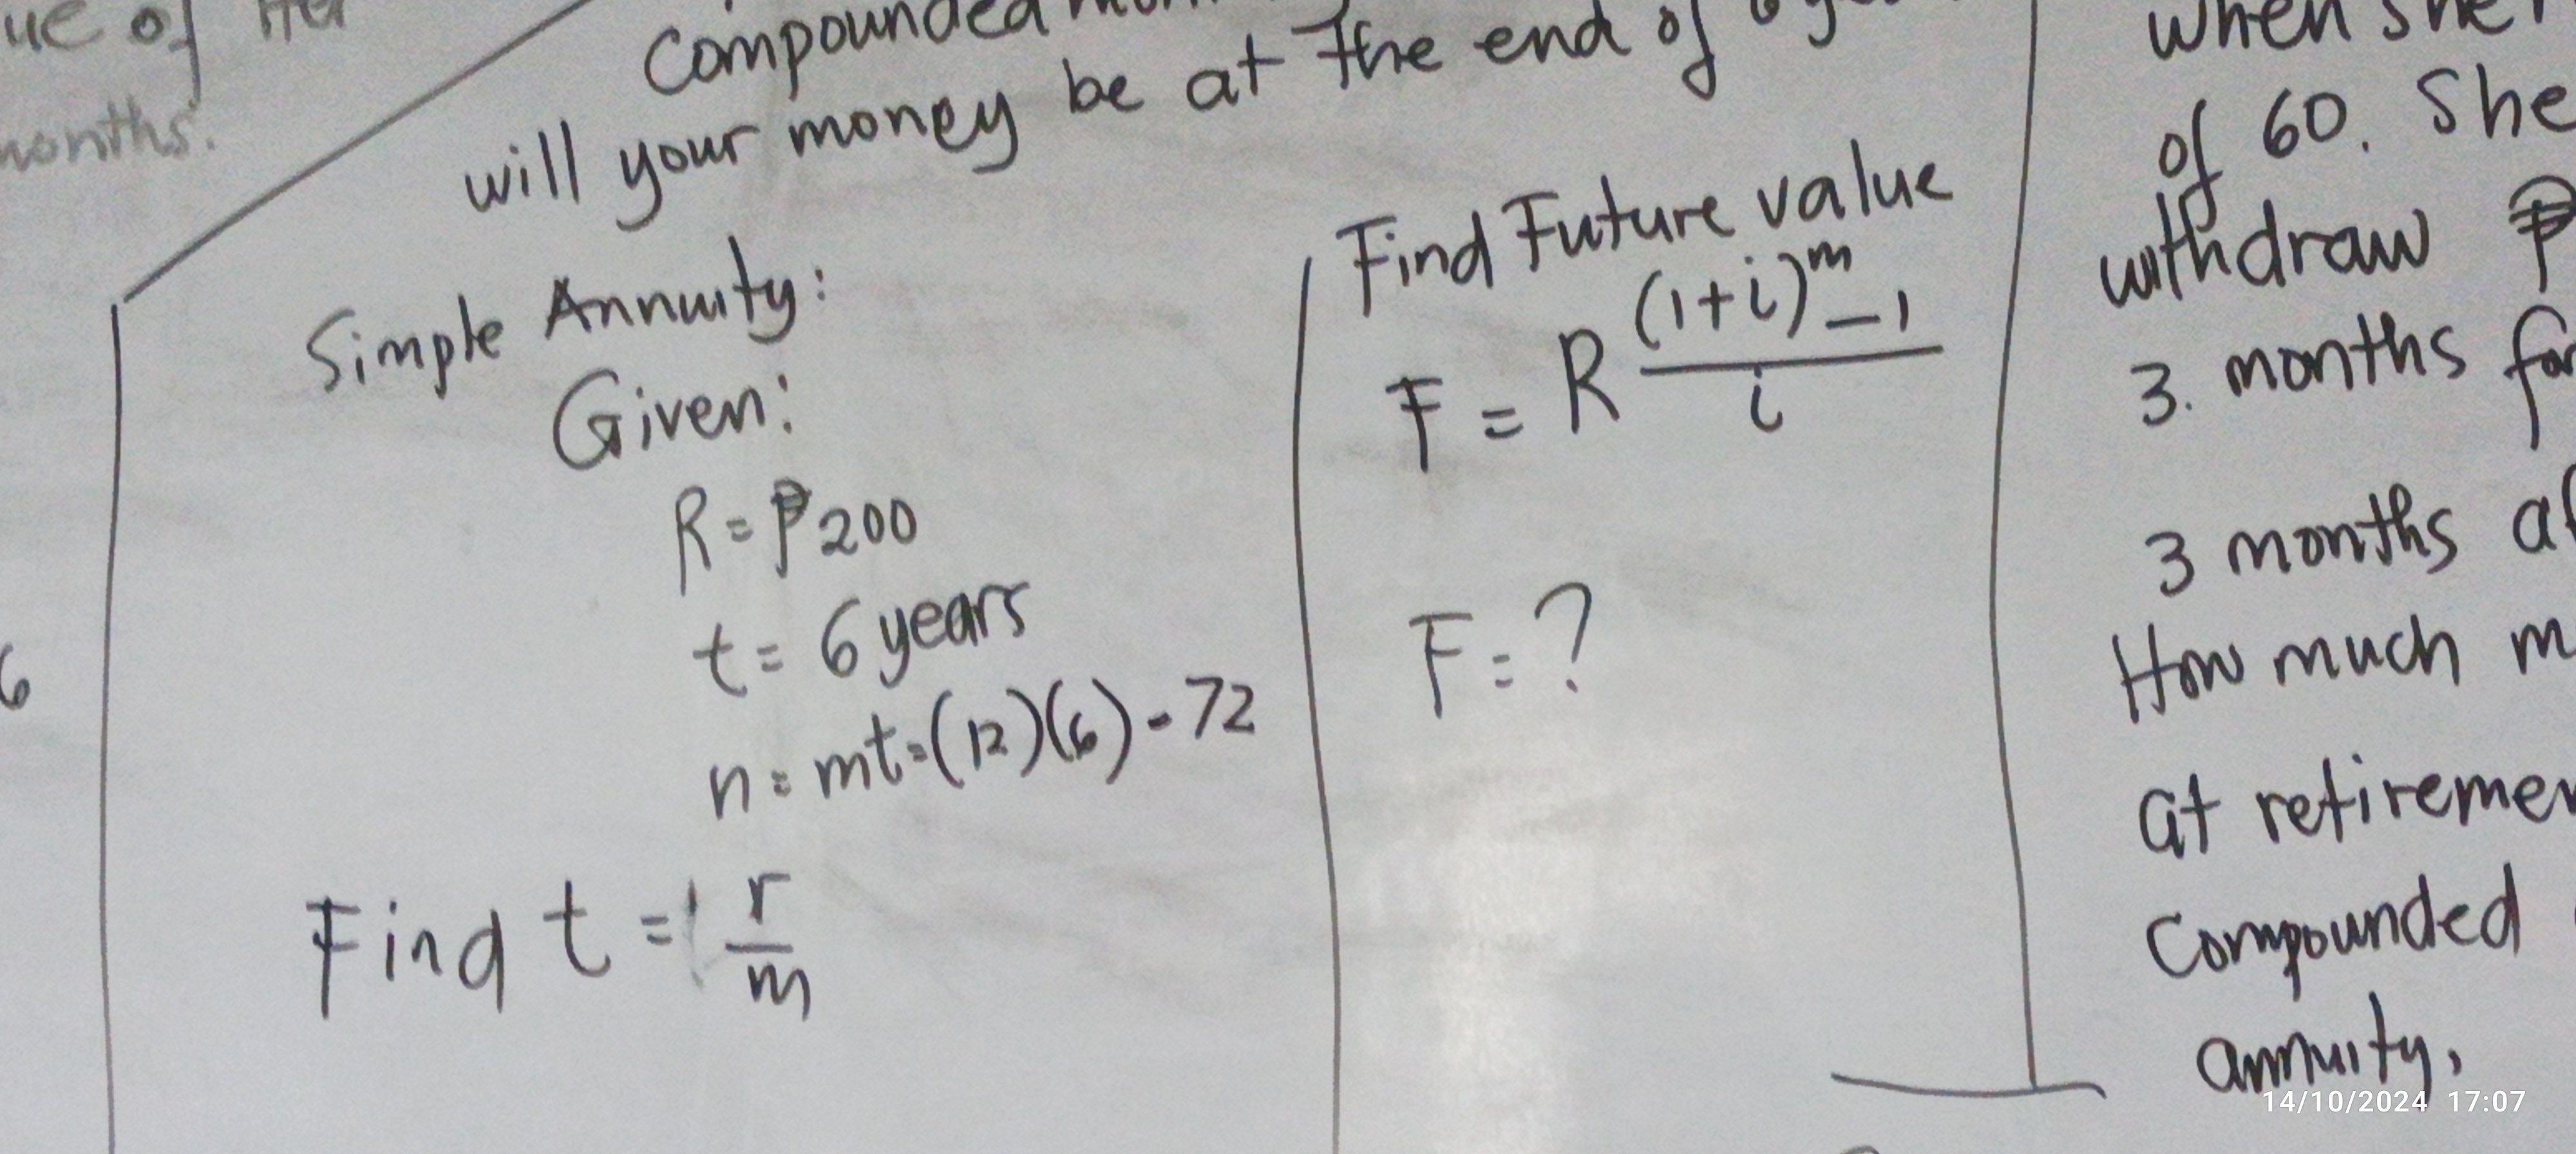 ue of
months.
6
Compounded
will your money be at the end of 6
Simple Annuity:
Given:
R = ₱200
t = 6 years
n = mt = (12)(6) = 72
Find t = r/m
Find Future value
F = R ((1+i)^m - 1)/i
F = ?
when she
of 60. She
withdraw ₱
3. months for
3 months
How much
at
Compounded
annuity,
14/10/2024 17:07